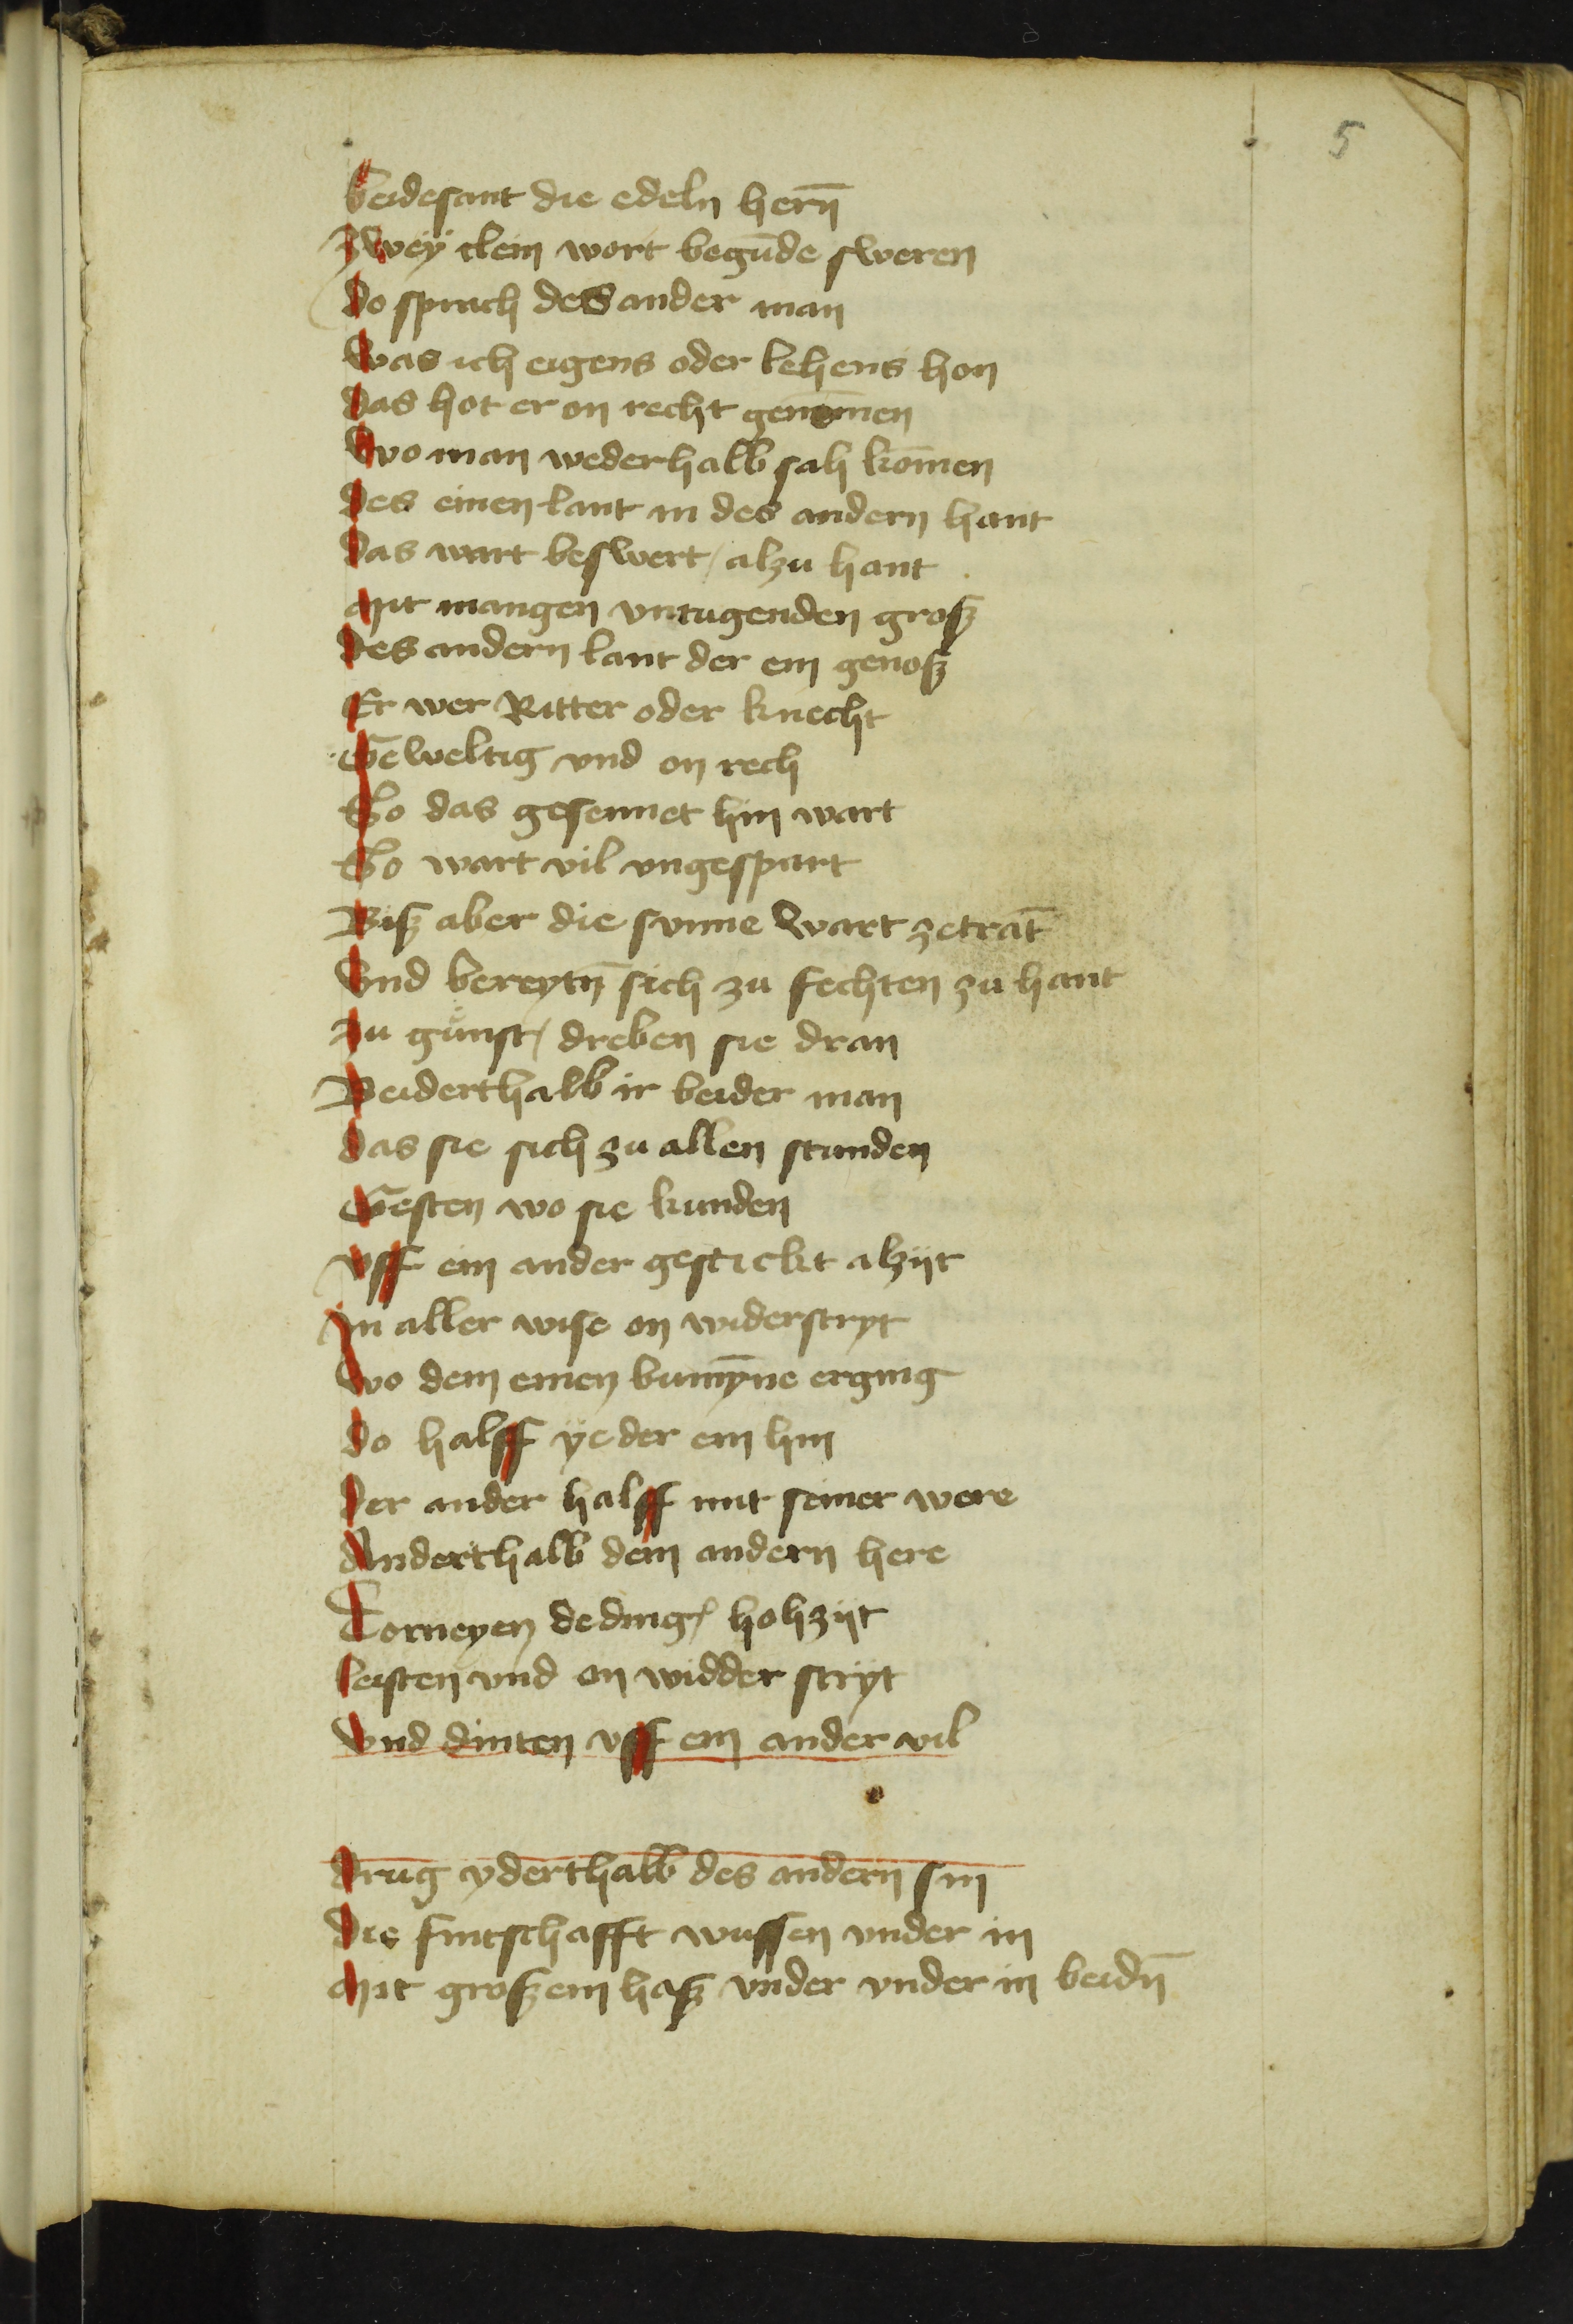 5
beidesant die edeln hern̄
Zwey clein wort begūde sweren
do sprach des ander man
Was ich eigens oder lehens hon
das hot er on recht genom̄en
Wo man wederhalb sah kom̄en
des einen lant in des andern hant
das wart beswert / alzu hant
Mit mangen vntugenden groß
Des andern lant der ein genoß
Er wer Ritter oder knecht
Geweltig vnd on rech
So das gesennet hin wart
So wart vil vngespart
Biß aber die sunne Wart zetrāt
Vnd bereytn̄ sich zu fechten zu hant
Zu gunst / dreben sie dran
Beiderthalb ir beider man
das sie sich zu allen stunden
Gesten wo sie kunden
vff ein ander gestickt alzijt
In aller wise on widerstryt
Wo dem einen bumȳne erging
do halff yeder ein hin
Der ander halff mit seiner were
Anderthalb dem andern here
Torneyen deding / hohzijt
leisten vnd on widder stryt
Vnd dinten vff ein ander vil
drug yderthalb des andern sin
Die fintschafft wussen vnder in
Mit großem haß vnder vnder in beidn̄